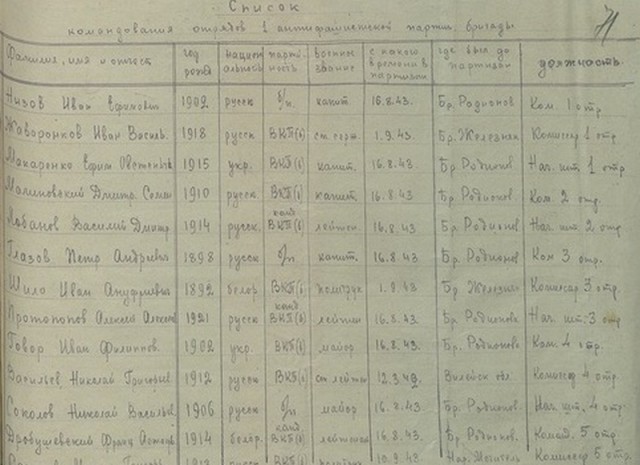 Список
71
командования отрядов 1 антифашистской партиз. бригады
Фамилия, имя и отчест год рожд национальность партийность военное звание с какого времени в партизан где был до партизан должность
Низов Иван Ефимович 1902 русск б/п капит. 16.8.43. Бр. Родионов Ком. 1 отр
Жаворонков Иван Василь. 1918 русск ВКП(б) ст. серж. 1.9.43. Бр. Железняк Комиссар 1 отр
Макаренко Ефим 1915 укр. ВКП(б) капит. 16.8.43. Бр. Родионов Нач. шт. 1 отр
Малиновский Дмитр. Семен 1910 русск. ВКП(б) капит. 16.8.43 Бр. Родионов. Ком. 2 отр
Лобанов Василий Дмитр 1914 русск. канд ВКП(б) лейтен. 16.8.43. Бр. Родионов Нач. шт 2 отр
Глазов Петр Андреевич 1898 русск б/п капит. 16.8.43 Бр. Родионов Ком 3 отр.
Шило Иван Ануфриевич 1892 белор ВКП(б) политрук 1.9.43 Бр. Железняк Комиссар 3 отр
Протопопов Алексей 1921 русск канд ВКП(б) лейтен 16.8.43. Бр. Родионова Нач. шт. 3 отр
Говор Иван Филиппов. 1902 укр. ВКП(б) майор 16.8.43. Бр. Родионов. Ком. 4 отр.
Васильев Николай Григорьев 1912 русск ВКП(б) ст лейтен 12.3.42. Вилейск обл. Комиссар 4 отр.
Соколов Николай Васильев 1906 русск б/п майор 16.8.43. Бр. Родионов. Нач. шт. 4 отр
Дробушевский Франц 1914 белор. канд ВКП(б) лейтенан 16.8.43. Бр. Родионов. Команд. 5 отр.
10.9.43 Комиссар 5 отр